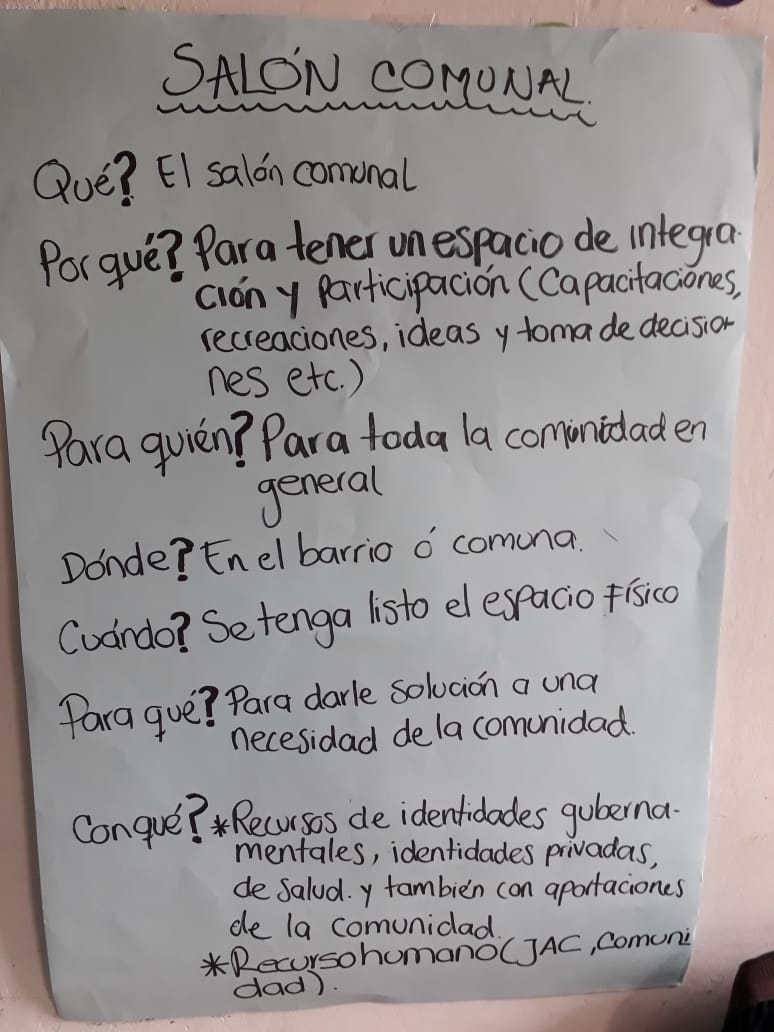 SALÓN COMUNAL.
Qué? El salón comunal
Por qué? Para tener un espacio de integra-
ción y Participación (Capacitaciones,
recreaciones, ideas y toma de decisio-
nes etc.)
Para quién? Para toda la comunidad en
general
Dónde? En el barrio ó comuna.
Cuándo? Se tenga listo el espacio físico
Para qué? Para darle solución a una
necesidad de la comunidad.
Con qué? *Recursos de identidades guberna-
mentales, identidades privadas,
de salud. y también con aportaciones
de la comunidad.
*Recurso humano (JAC, Comuni
dad).